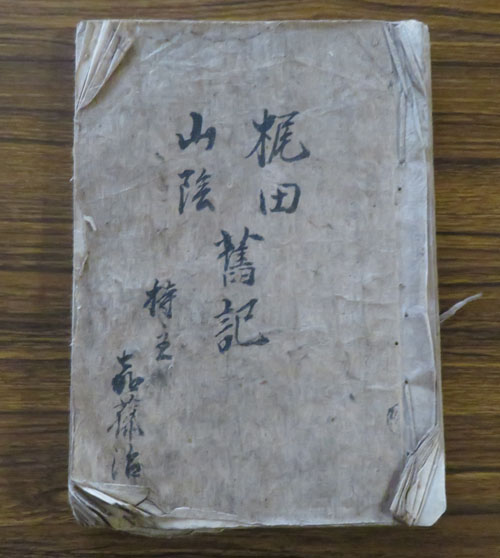 梶田
山陰
舊記
持主
嘉藤治